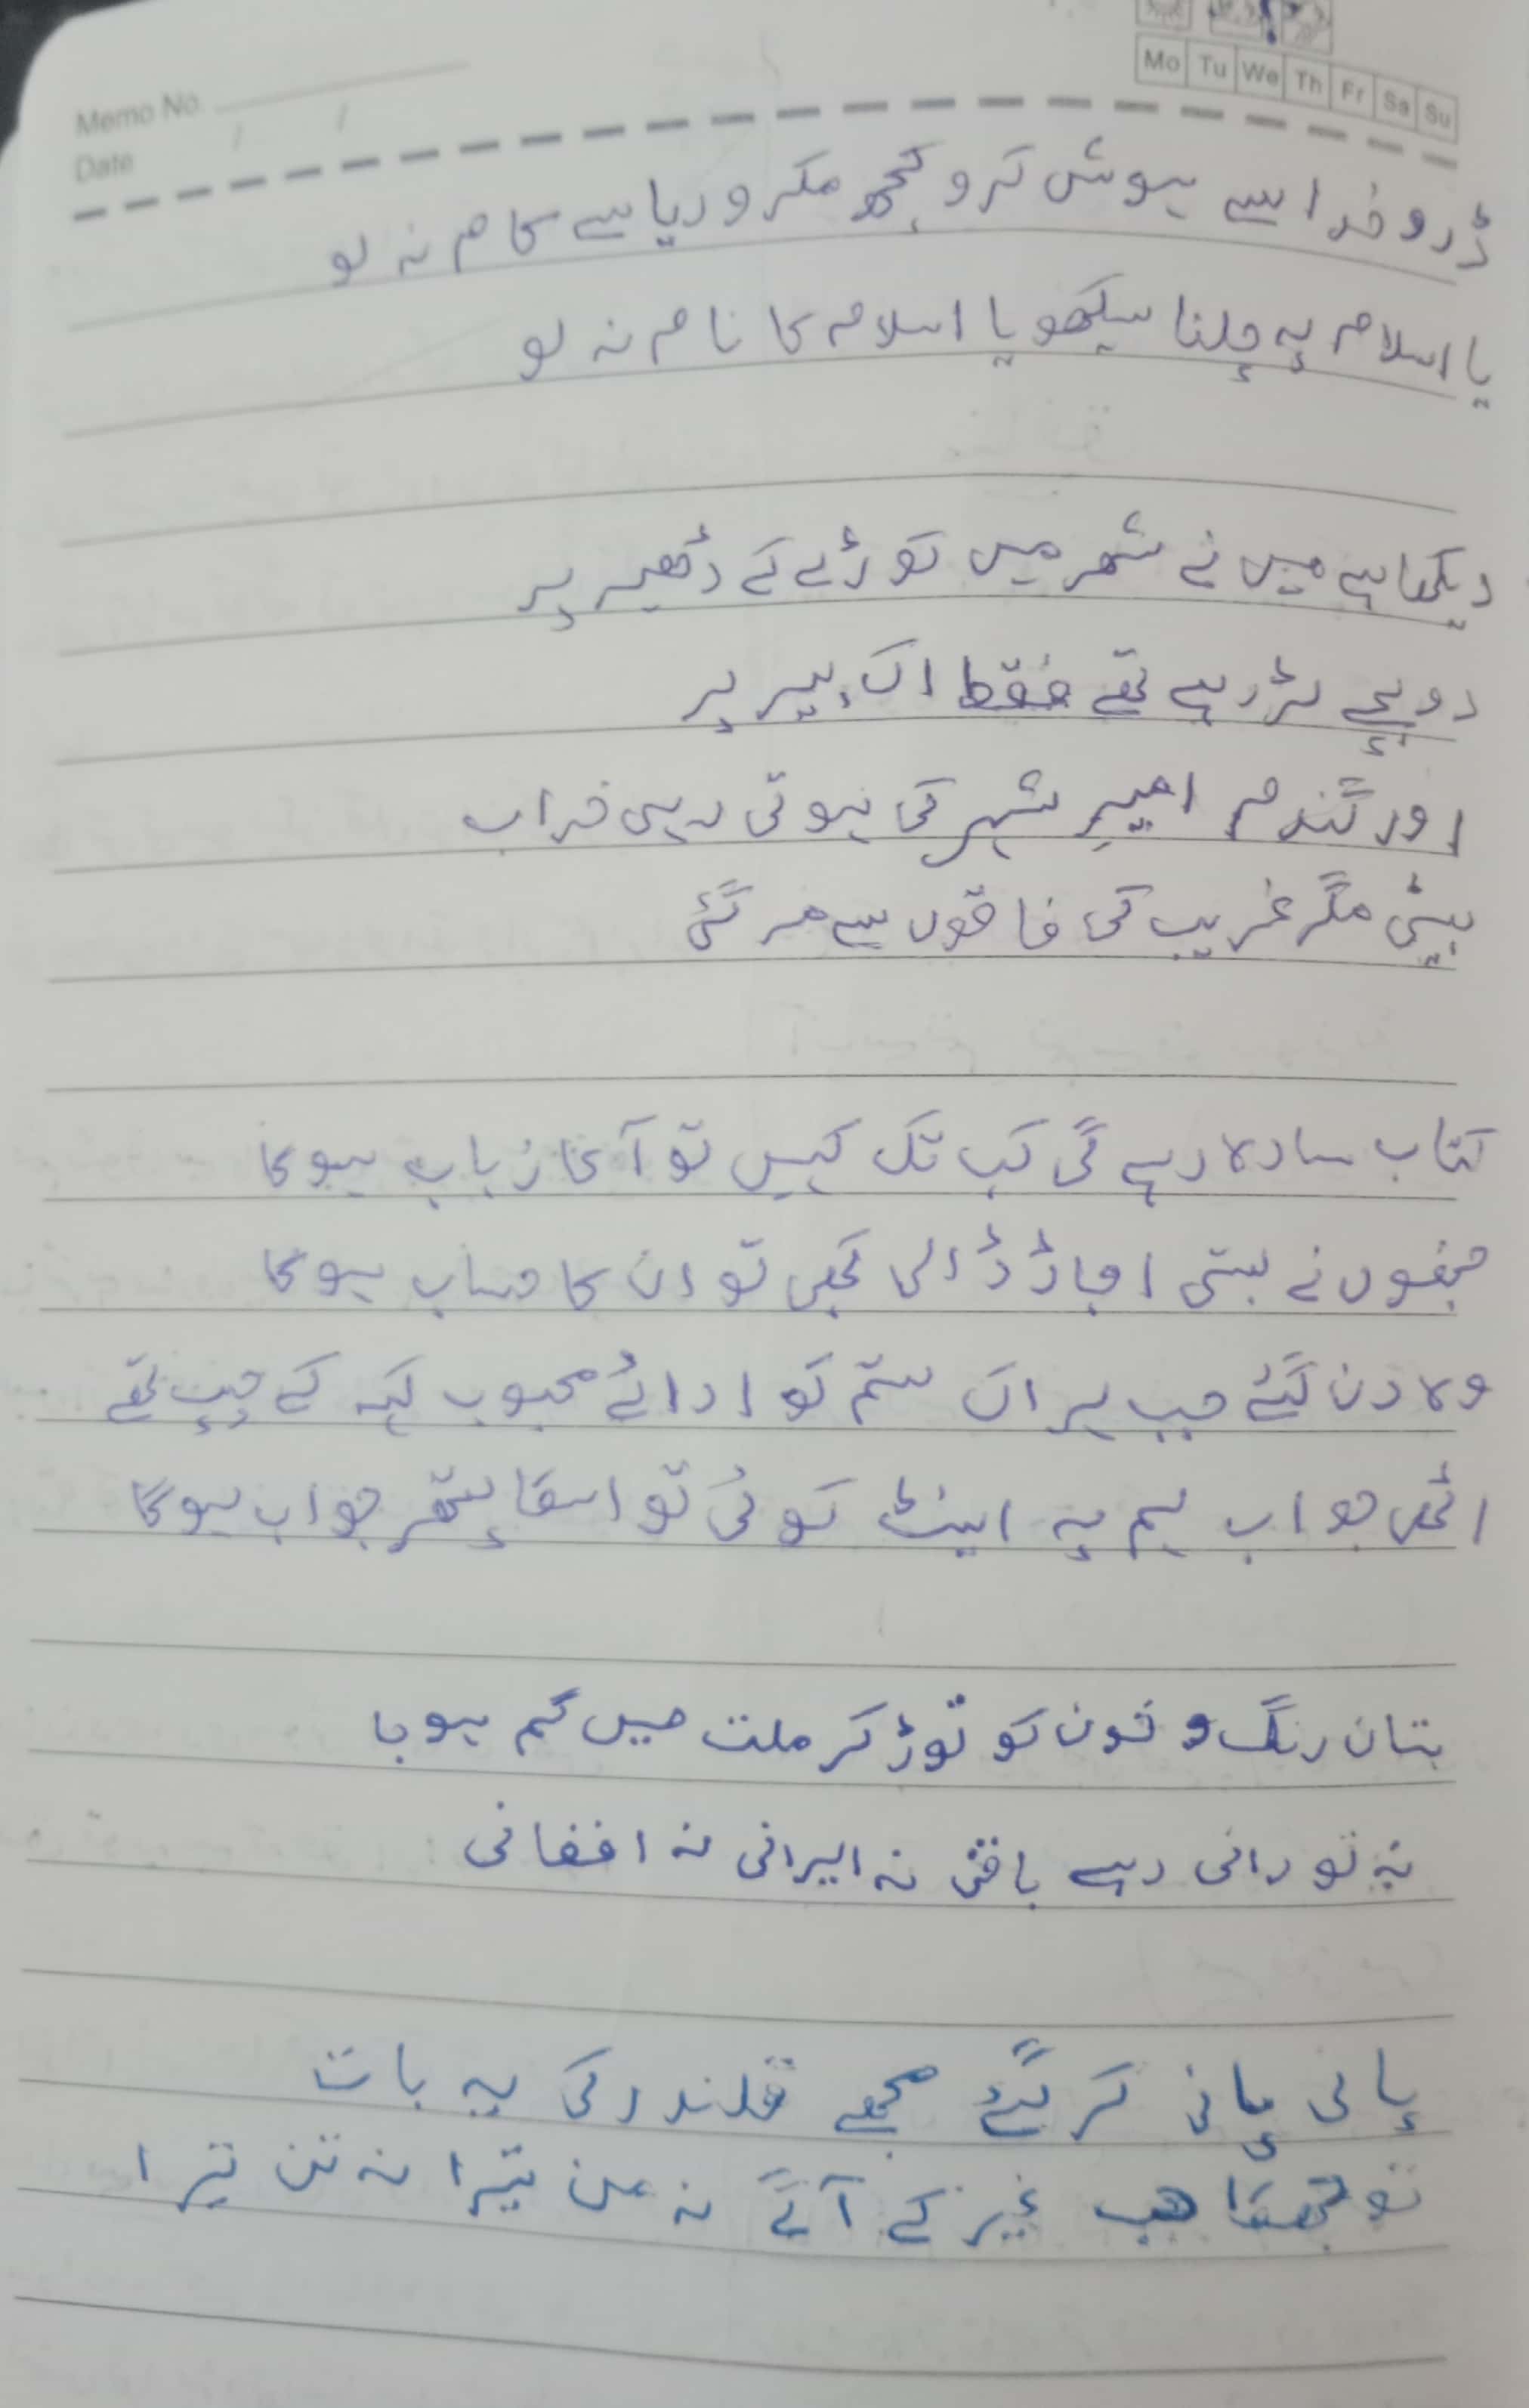 Memo No.
Mo Tu We Th Fr Sa Su
Date / /
ڈرو خدا سے ہوش کرو کچھ مکر و ریا سے کام نہ لو
یا اسلام پہ چلنا سیکھو یا اسلام کا نام نہ لو
دیکھا ہے میں نے شھر میں کوڑے کے ڈھیر پر
دو بچے لڑ رہے تھے فقط اک بیر پر
اور گندم امیرِ شہر کی ہوتی رہی خراب
بیٹی مگر غریب کی فاقوں سے مر گئی
کتاب سادہ رہے گی کب تک کہیں تو آغاز باب ہوگا
جنھوں نے بستی اجاڑ ڈالی کبھی تو ان کا حساب ہوگا
وہ دن گئے جب ہر اک ستم کو ادائے محبوب کہہ کے چپ تھے
اٹھی جو اب ہم پہ اینٹ کوئی تو اسکا پتھر جواب ہوگا
بتان رنگ و خون کو توڑ کر ملت میں گم ہو جا
نہ تورانی رہے باقی نہ ایرانی نہ افغانی
پانی پانی کر گئے مجھے قلندر کی یہ بات
تو جھکا جب غیر کے آگے نہ من تیرا نہ تن تیرا